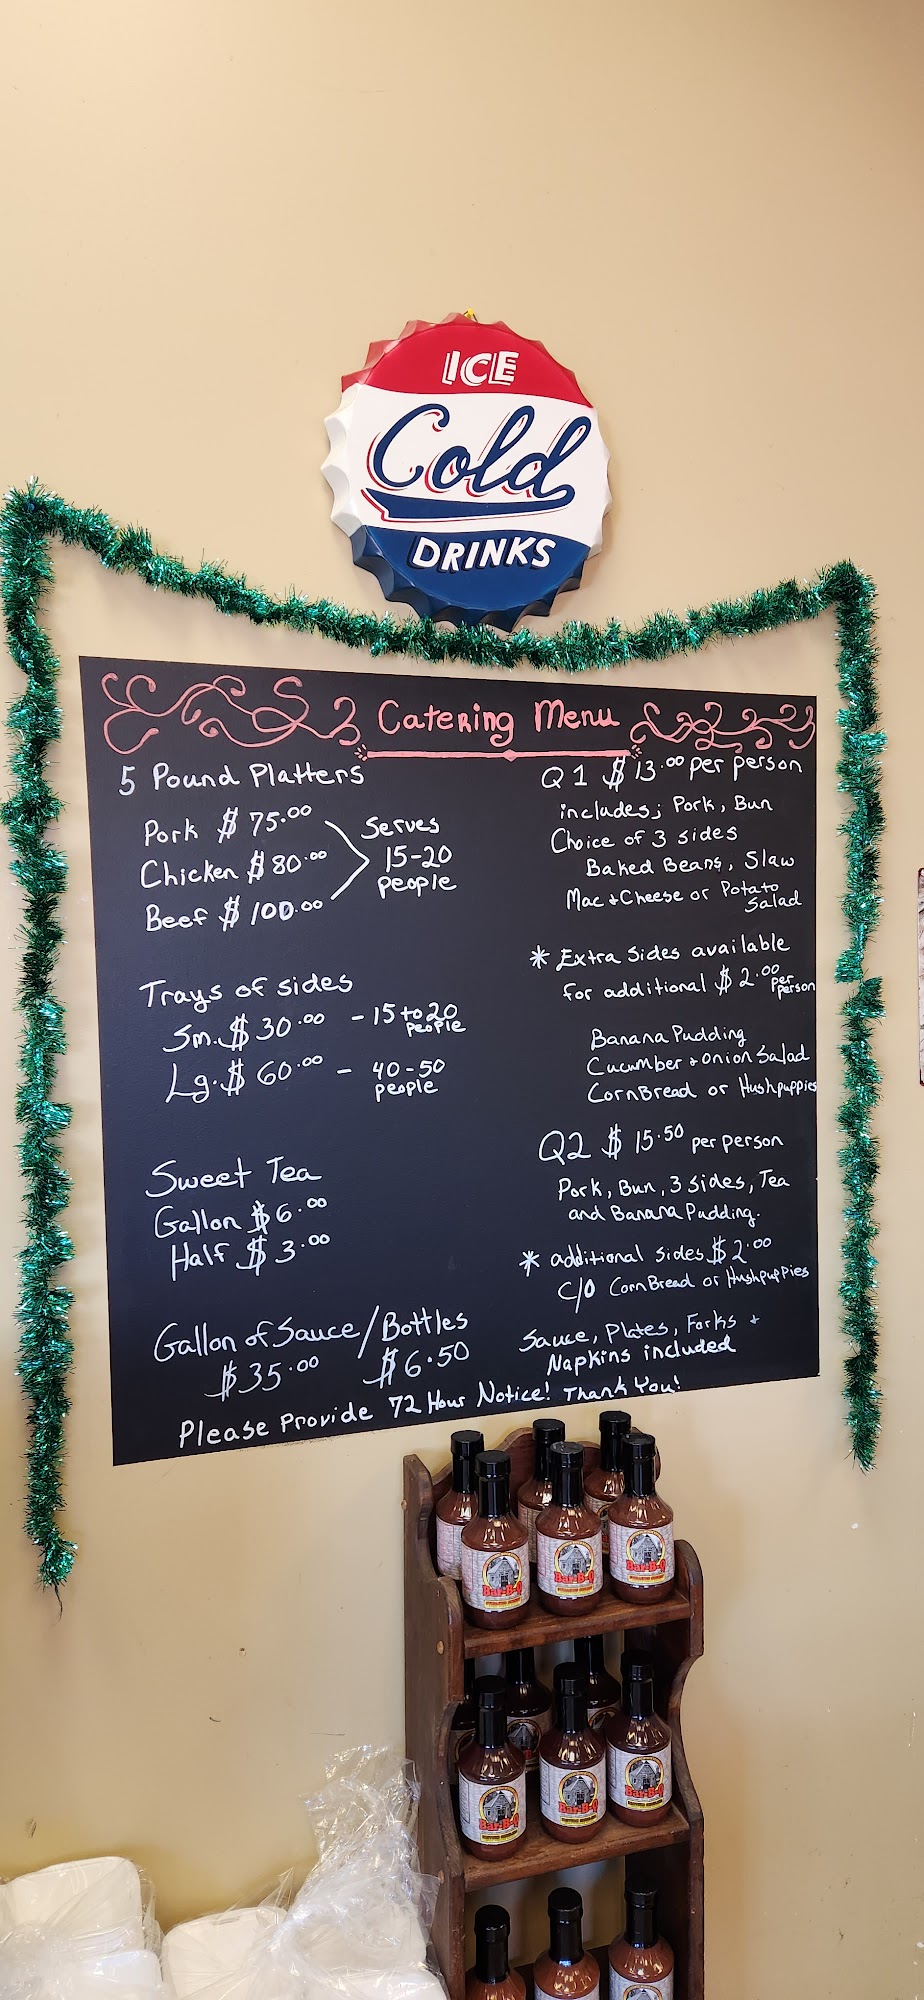 ICE
Cold
DRINKS
Catering Menu
5 Pound Platters
Pork $75.00
Chicken $80.00
Beef $100.00
Serves
15-20
people
Trays of sides
Sm. $30.00 - 15 to 20
people
Lg. $60.00 - 40-50
people
Sweet Tea
Gallon $6.00
Half $3.00
Gallon of Sauce/Bottles
$35.00 $6.50
Q1 $13.00 per person
includes; Pork, Bun
Choice of 3 sides
Baked Beans, Slaw
Mac + Cheese or Potato
Salad
* Extra Sides available
for additional $2.00 per
person
Banana Pudding
Cucumber + Onion Salad
CornBread or Hushpuppies
Q2 $15.50 per person
Pork, Bun, 3 sides, Tea
and Banana Pudding.
* additional sides $2.00
C/O CornBread or Hushpuppies
Sauce, Plates, Forks +
Napkins included
Please Provide 72 Hour Notice! Thank You!
Bar-B-Q
Bar-B-Q
Bar-B-Q
Bar-B-Q
Bar-B-Q
Bar-B-Q